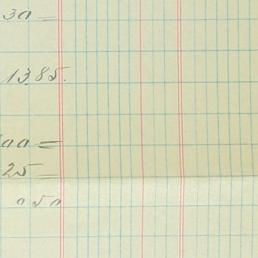 30=
1385.
00=
25=
050